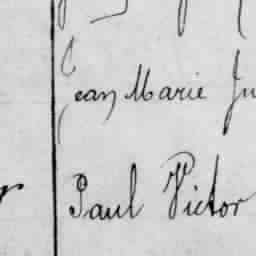 Jean Marie Ju
Paul Victor